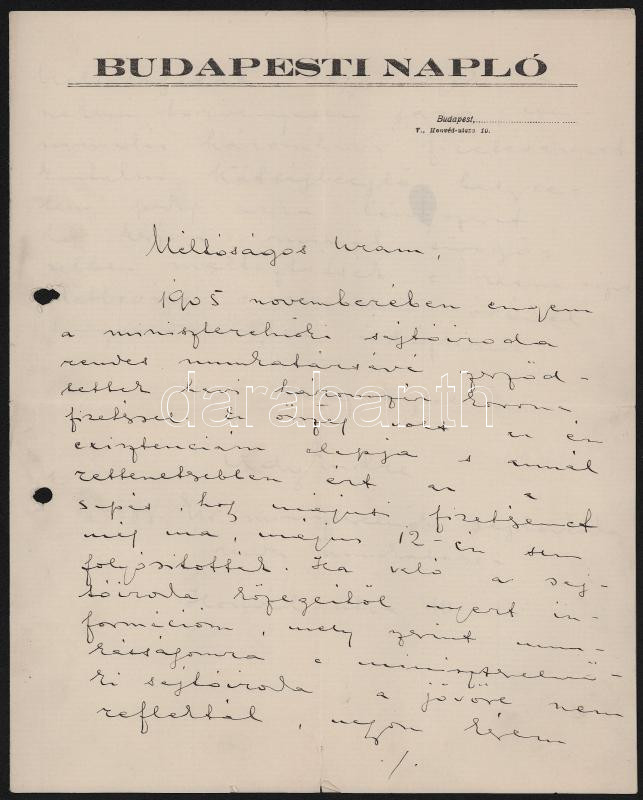 BUDAPESTI NAPLÓ
Budapest,
V., Honvéd-utcza 10.
Méltóságos Uram,
1905 novemberében engem
a miniszterelnöki sajtóiroda
rendes munkatársává szerződ-
tettek havi háromszáz korona
fizetéssel. Ez összeg volt az én
exisztenciám alapja s annál
rettenetesebben ért az a
csapás, hogy májusi fizetésemet
még ma, május 12-én sem
folyósították. Ha való a saj-
tóiroda közegeitől nyert in-
formációm, mely szerint mun-
kásságomra a miniszterelnö-
ki sajtóiroda a jövőre nem
reflektál, nagyon kérem
./.
darabanth